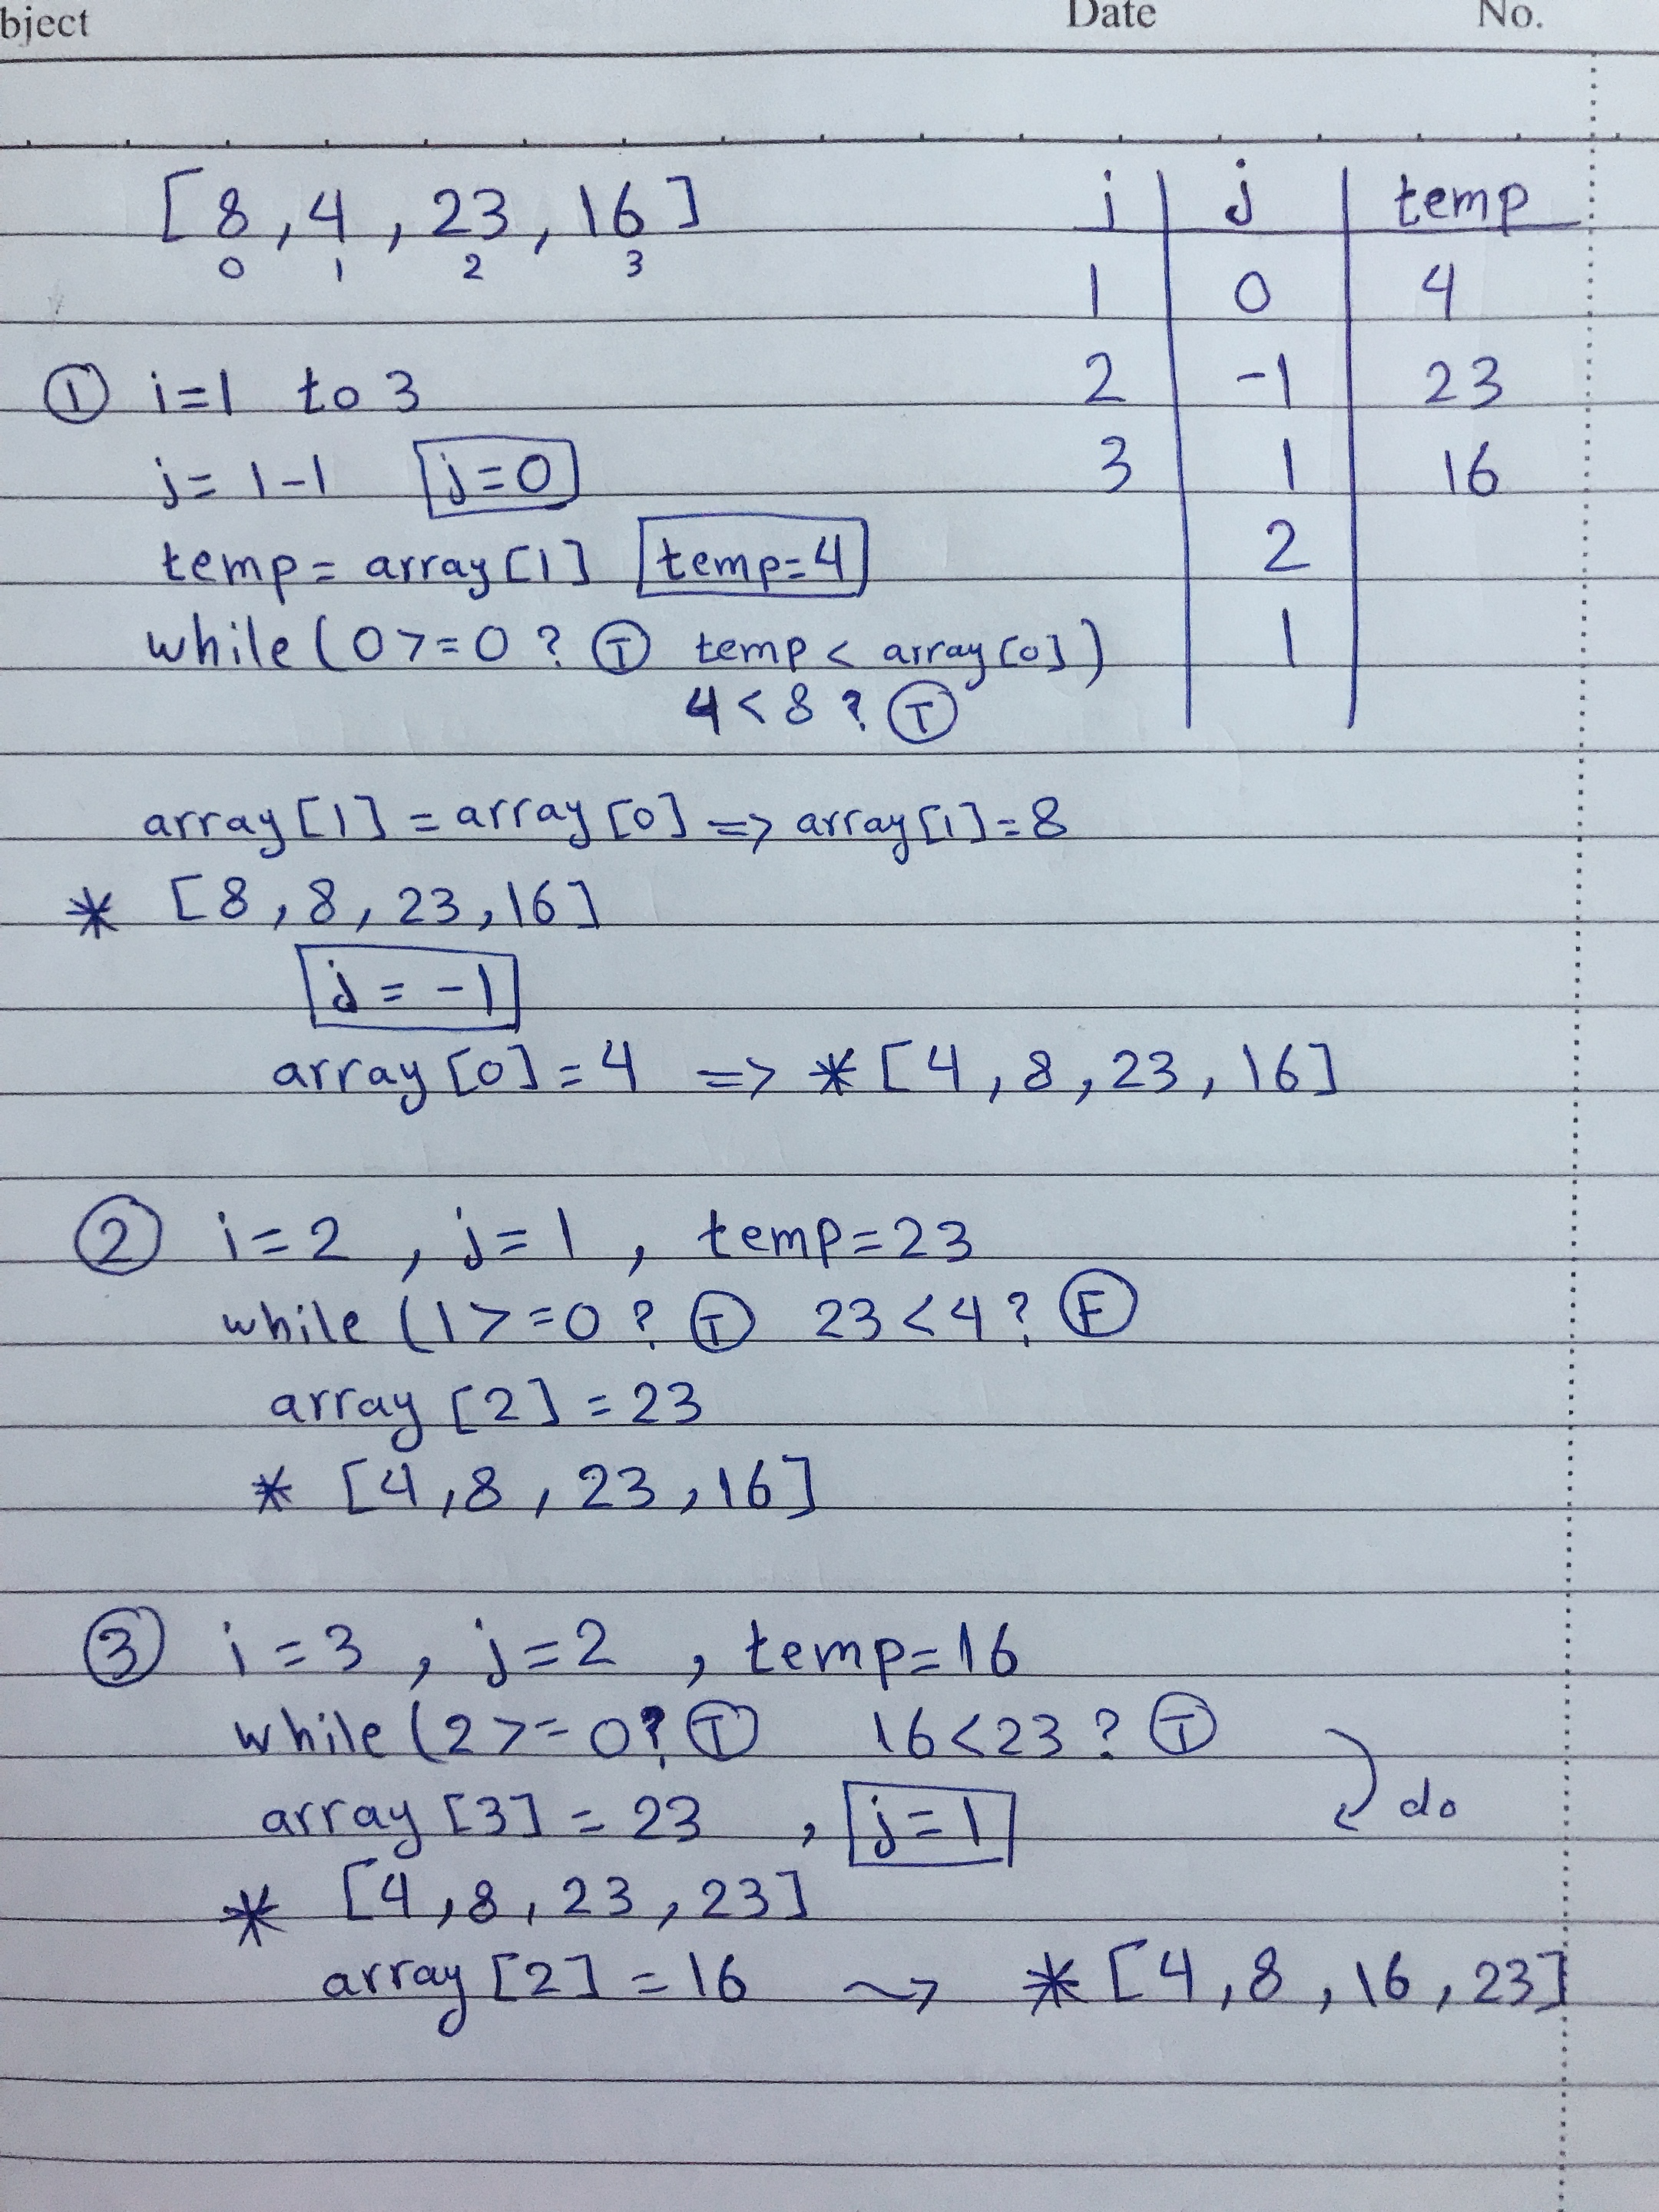 bject Date No.
[8, 4, 23, 16]
0 1 2 3
i j temp
1 0 4
2 -1 23
3 1 16
2
1
① i=1 to 3
j= 1-1 j=0
temp= array[1] temp=4
while (0>=0 ? Ⓣ temp < array[0])
4<8 ? Ⓣ
array[1] = array[0] => array[1]=8
* [8, 8, 23, 16]
j = -1
array[0]=4 => * [4, 8, 23, 16]
② i=2 , j=1 , temp=23
while (1>=0 ? Ⓣ 23<4 ? Ⓕ
array [2] = 23
* [4, 8, 23, 16]
③ i=3 , j=2 , temp=16
while (2>=0? Ⓣ 16<23 ? Ⓣ
array [3] = 23 , j=1 do
* [4, 8, 23, 23]
array [2] = 16 ~> * [4, 8, 16, 23]